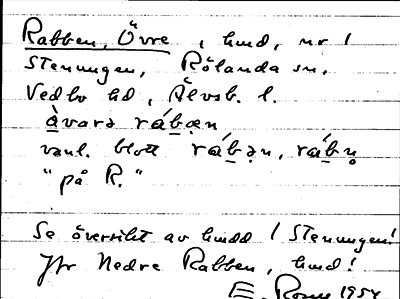 Rabben, Övre, hmd, nr 1
Stenungen, Rölanda sn,
Vedbo hd, Älvsb. l.
àvarə rábæn
vanl. blott rábən, rábn̥
"på R."
Se översikt av hmdd / Stenungen!
Jfr Nedre Rabben, hmd!
E. 1954